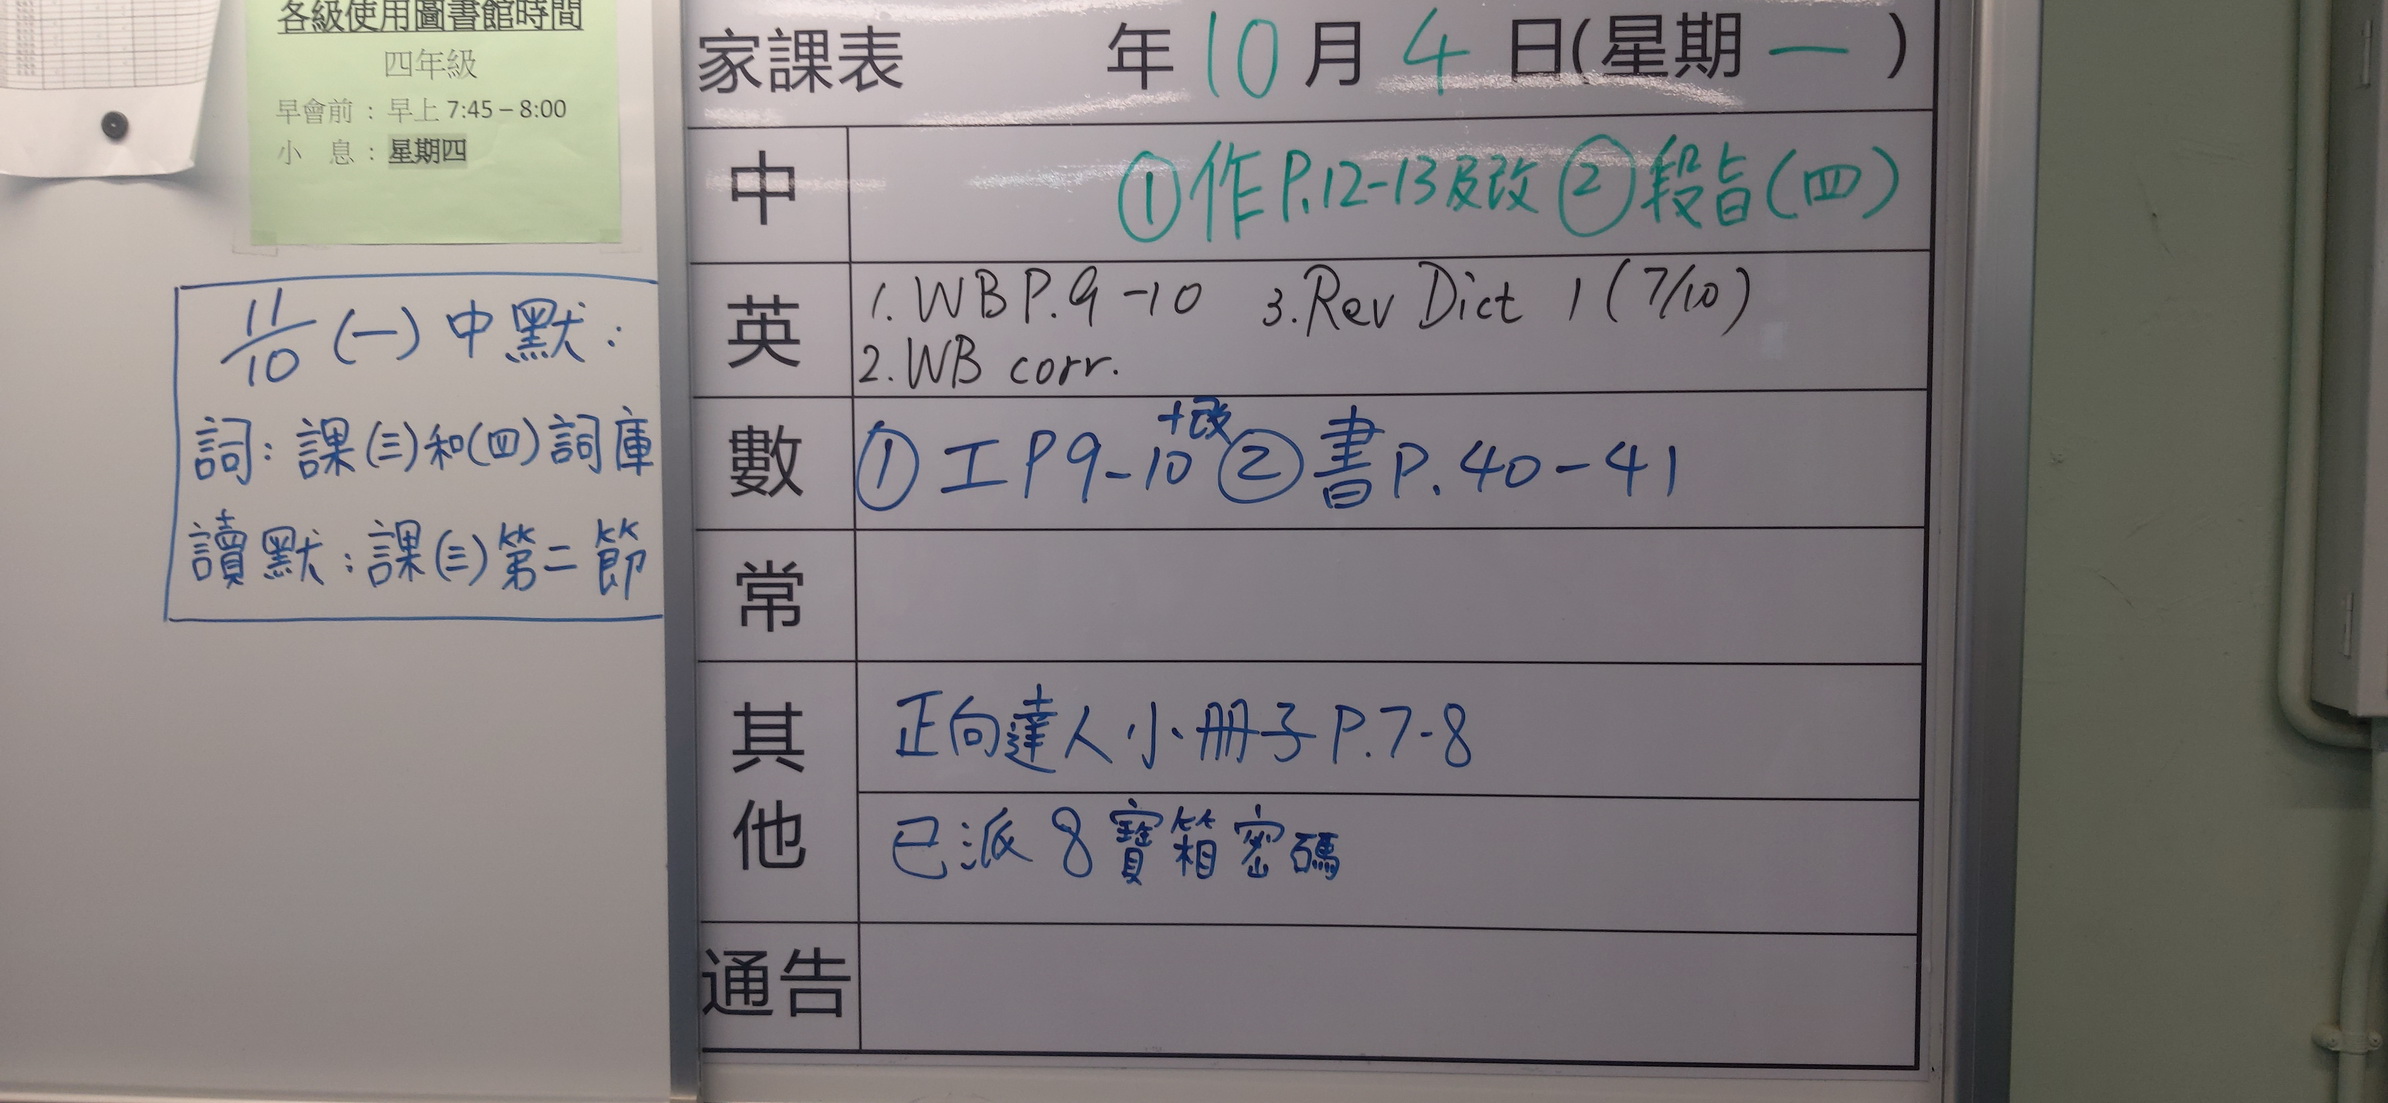 各級使用圖書館時間
四年級
早會前：早上 7:45 – 8:00
小 息：星期四
11/10 (一) 中默：
詞：課(三)和(四)詞庫
讀默：課(三)第二節
家課表 年 10 月 4 日(星期 一 )
中 ①作P.12-13及改 ②段旨(四)
英 1. WB P.9-10 3. Rev Dict 1 (7/10)
2. WB corr.
數 ①工P9-10+改 ②書P.40-41
常
其他 正向達人小冊子P.7-8
已派8寶箱密碼
通告